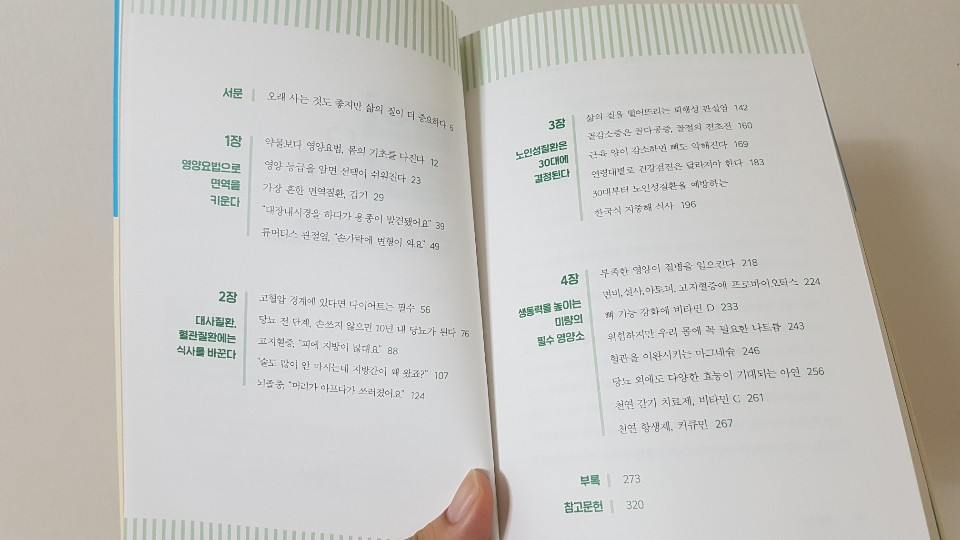 서문
오래 사는 것도 좋지만 삶의 질이 더 중요하다 6
1장
영양요법으로
면역을
키운다
약물보다 영양요법, 몸의 기초를 다진다 12
영양 등급을 알면 선택이 쉬워진다 23
가장 흔한 면역질환, 감기 29
“대장내시경을 하다가 용종이 발견됐어요” 39
류머티스 관절염, “손가락에 변형이 와요” 49
2장
대사질환,
혈관질환에는
식사를 바꾼다
고혈압 경계에 있다면 다이어트는 필수 56
당뇨 전 단계, 손쓰지 않으면 10년 내 당뇨가 된다 76
고지혈증, “피에 지방이 많대요” 88
“술도 많이 안 마시는데 지방간이 왜 왔죠?” 107
뇌졸중, “머리가 아프다가 쓰러졌어요” 124
3장
노인성질환은
30대에
결정된다
삶의 질을 떨어뜨리는 퇴행성 관절염 142
골감소증은 골다공증, 골절의 전초전 160
근육 양이 감소하면 뼈도 약해진다 169
연령대별로 건강검진은 달라져야 한다 183
30대부터 노인성질환을 예방하는
한국식 지중해 식사 196
4장
생동력을 높이는
미량의
필수 영양소
부족한 영양이 질병을 일으킨다 218
변비, 설사, 아토피, 고지혈증에 프로바이오틱스 224
뼈 기능 강화에 비타민 D 233
위험하지만 우리 몸에 꼭 필요한 나트륨 243
혈관을 이완시키는 마그네슘 246
당뇨 외에도 다양한 효능이 기대되는 아연 256
천연 감기 치료제, 비타민 C 261
천연 항생제, 커큐민 267
부록 273
참고문헌 320